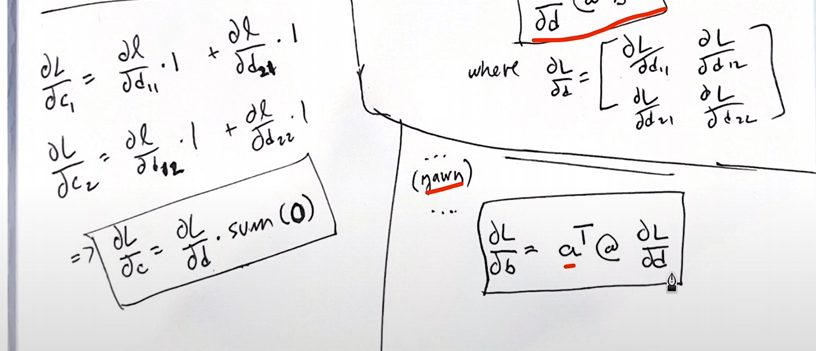 ∂L/∂c₁ = ∂l/∂d₁₁ · 1 + ∂l/∂d₂₁ · 1
∂L/∂c₂ = ∂l/∂d₁₂ · 1 + ∂l/∂d₂₂ · 1
=> ∂L/∂c = ∂L/∂d · sum(0)
∂d @
where ∂L/∂d = [∂L/∂d₁₁ ∂L/∂d₁₂
∂L/∂d₂₁ ∂L/∂d₂₂]
...
(yawn)
....
∂L/∂b = aᵀ @ ∂L/∂d